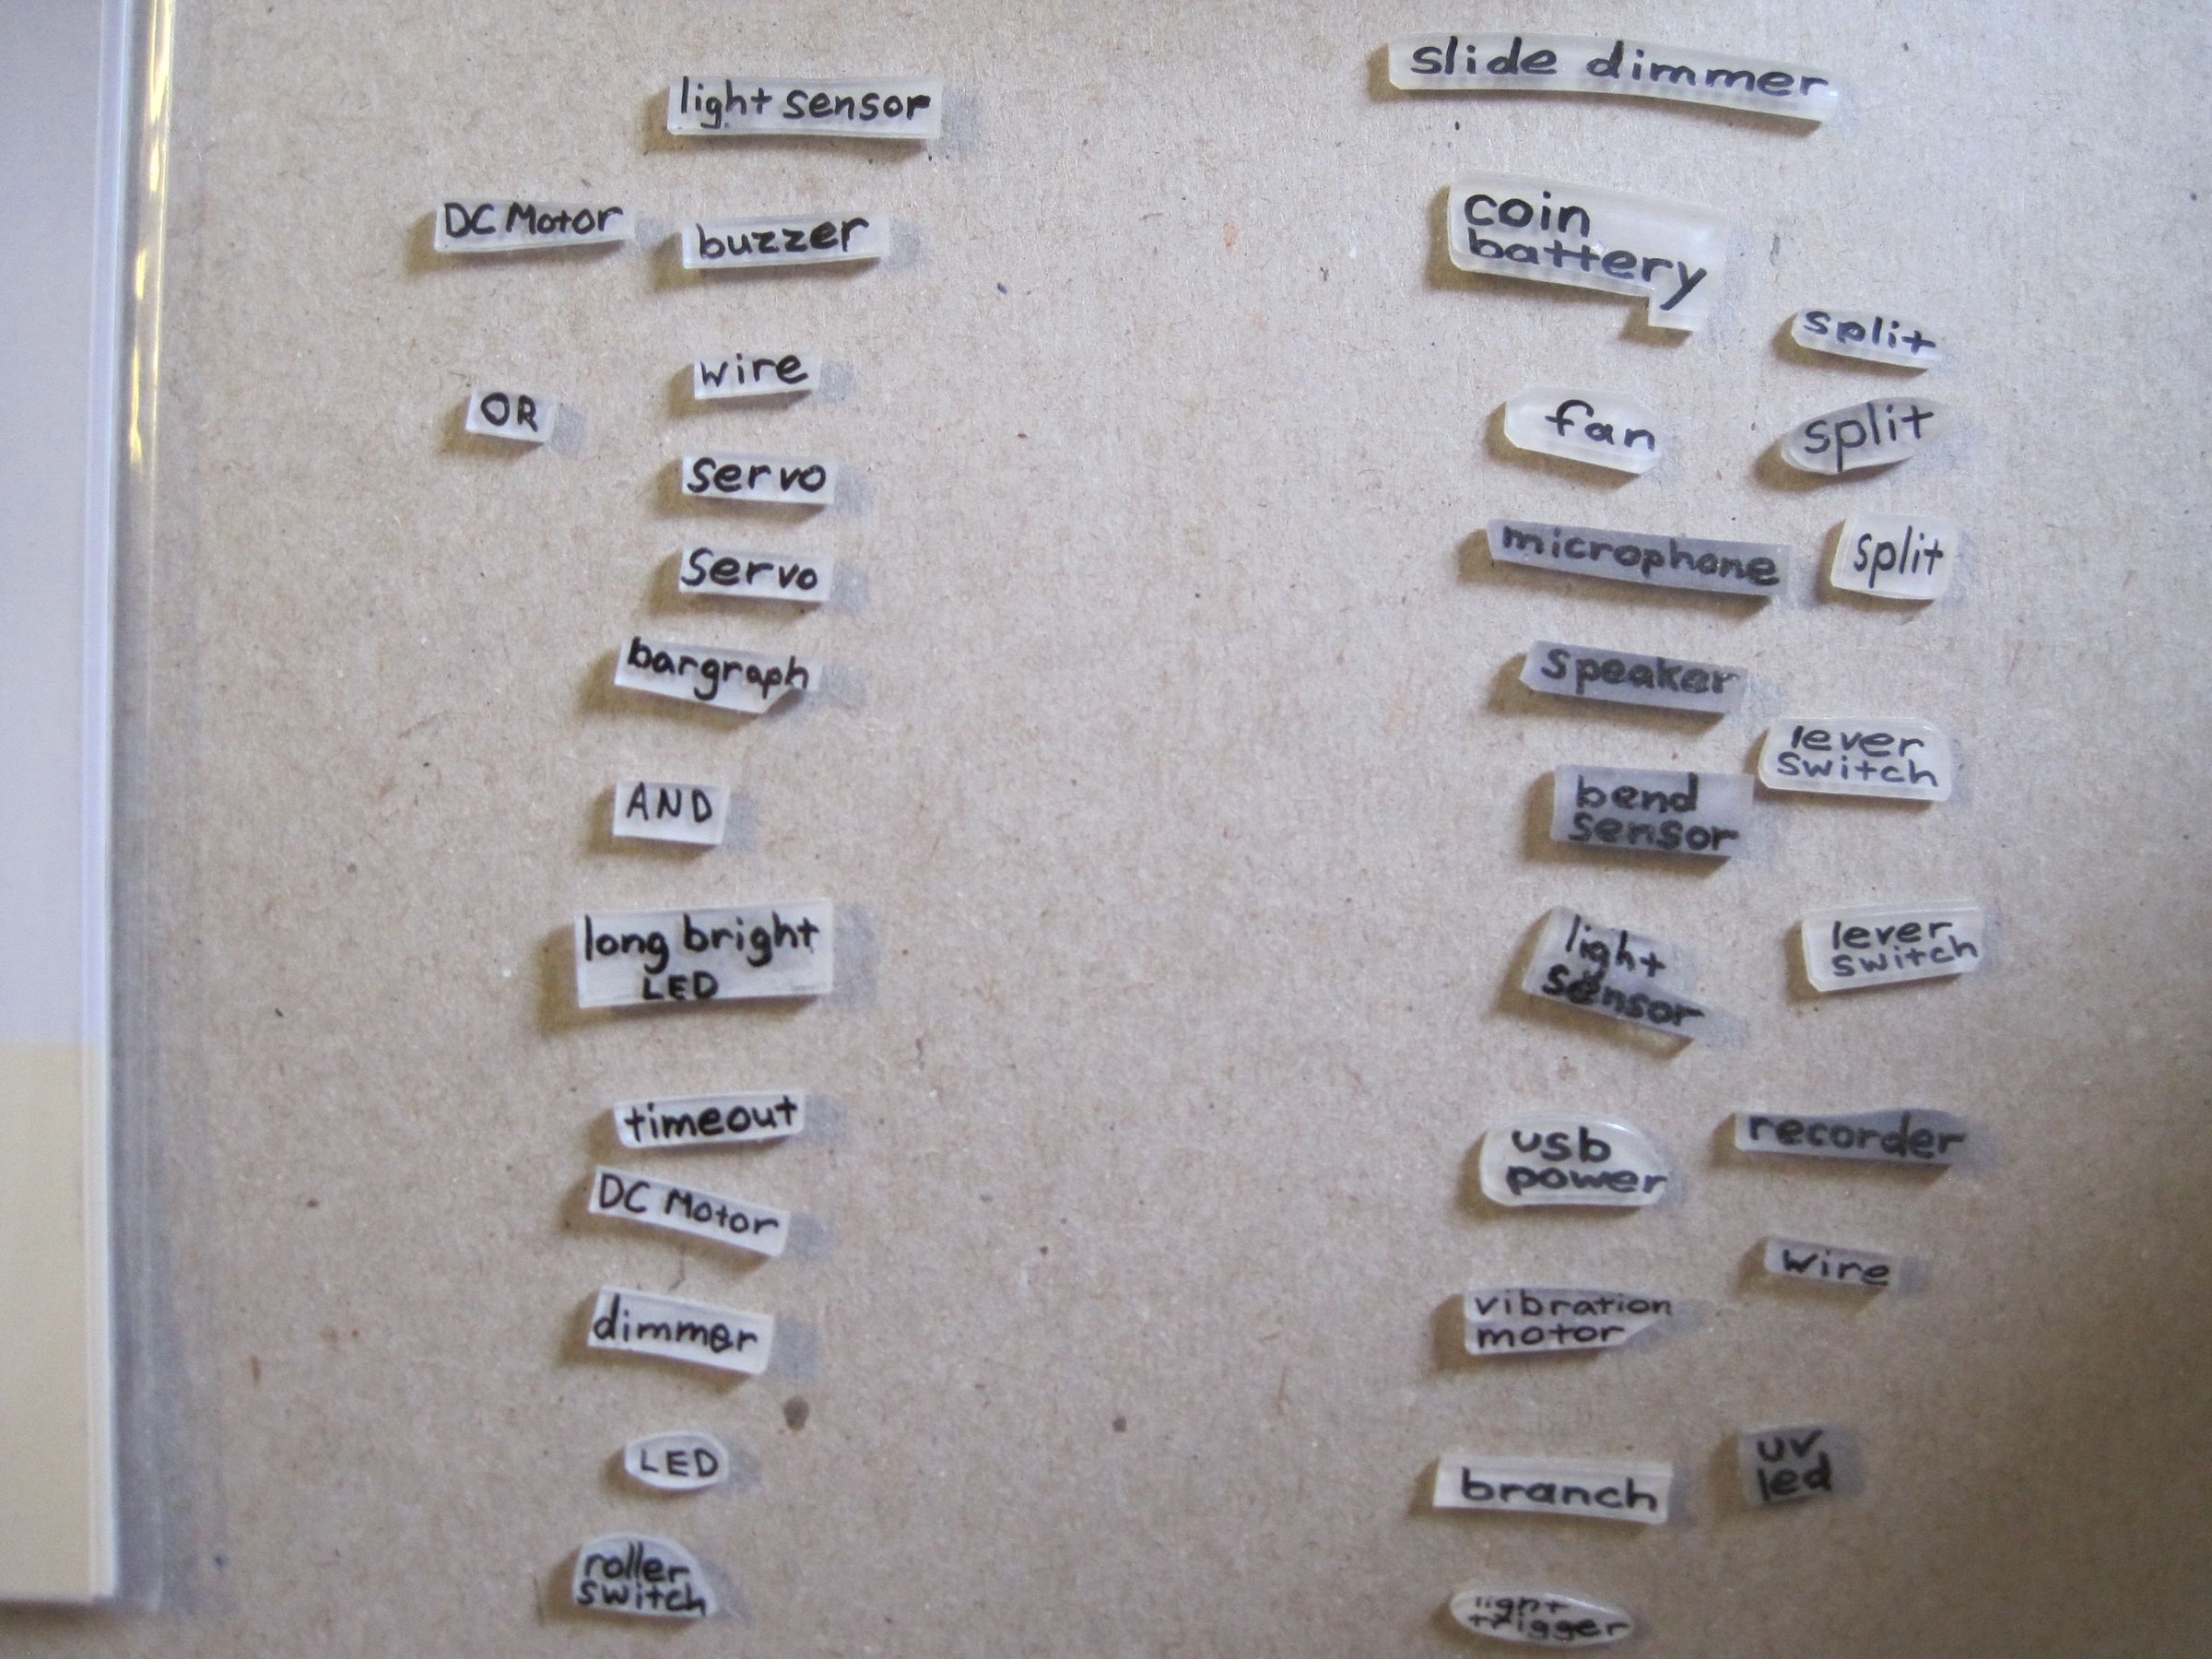 light sensor
DC Motor
buzzer
wire
OR
servo
servo
bargraph
AND
long bright
LED
timeout
DC Motor
dimmer
LED
roller
switch
slide dimmer
coin
battery
split
fan
split
microphone
split
speaker
lever
switch
bend
sensor
light
sensor
lever
switch
usb
power
recorder
wire
vibration
motor
branch
uv
led
light
trigger